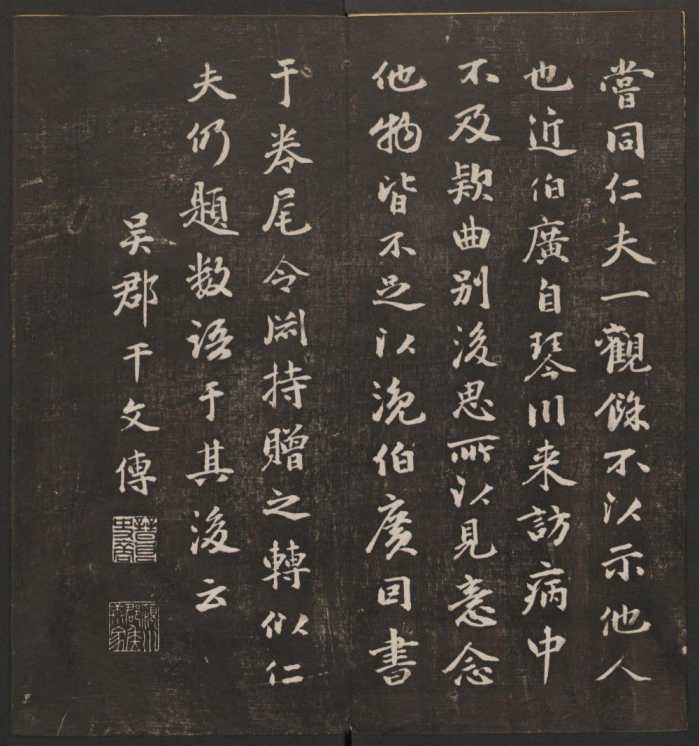 當同仁夫一觀餘不以示他人
也近伯廣自琴川来訪病中
不及款曲别後思所以見意念
他物皆不足以浼伯廣因書
于券尾令闶持贈之轉似仁
夫仍題数语于其後云
吴郡干文傳